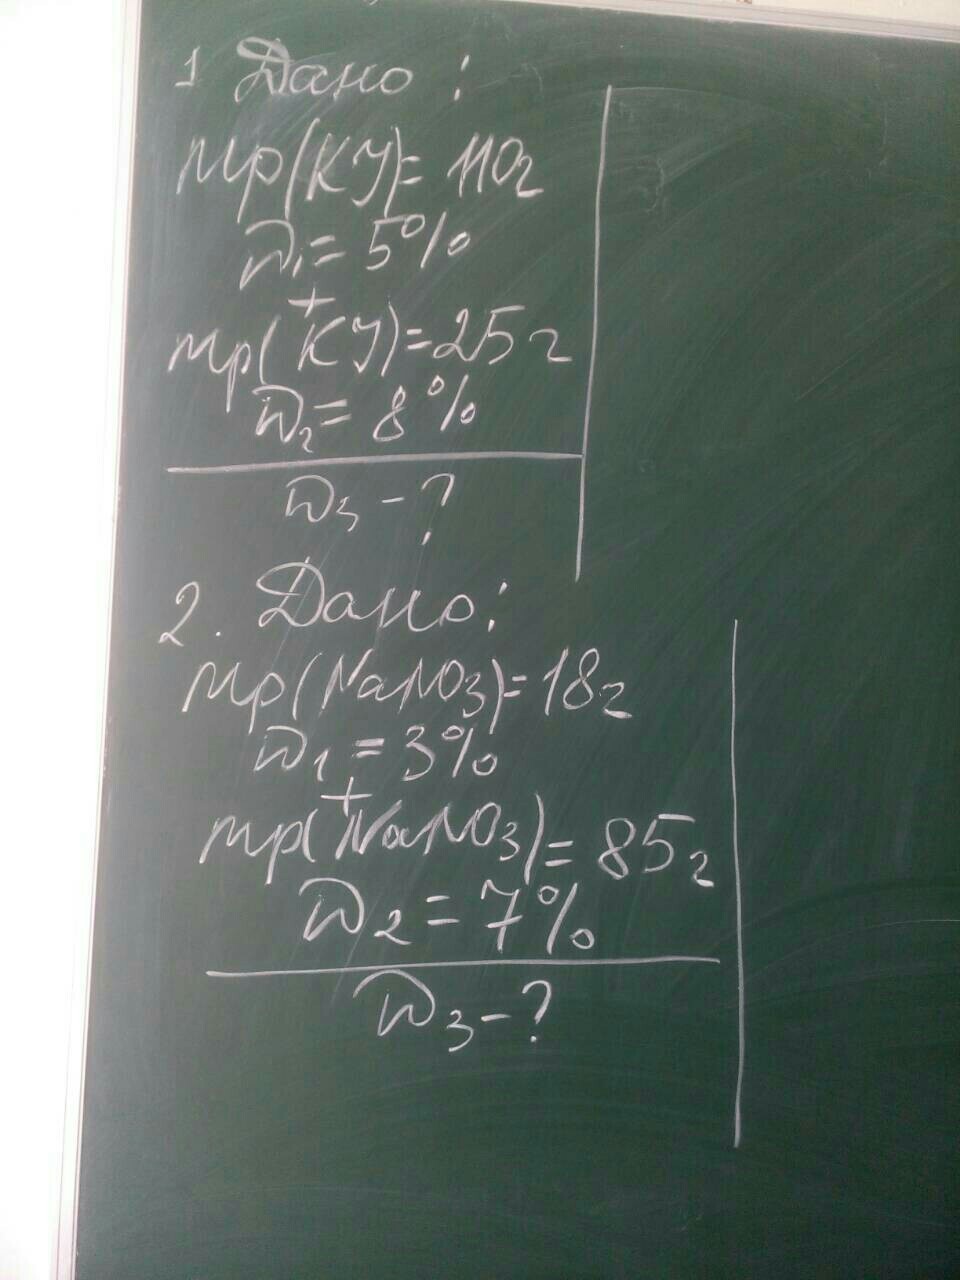 1 Дано:
mр(KJ)= 110г
W₁= 5%
+
mр(KJ)=25г
W₂= 8%
W₃-?
2. Дано:
mр(NaNO₃)=18г
W₁=3%
+
mр(NaNO₃)= 85г
W₂=7%
W₃-?